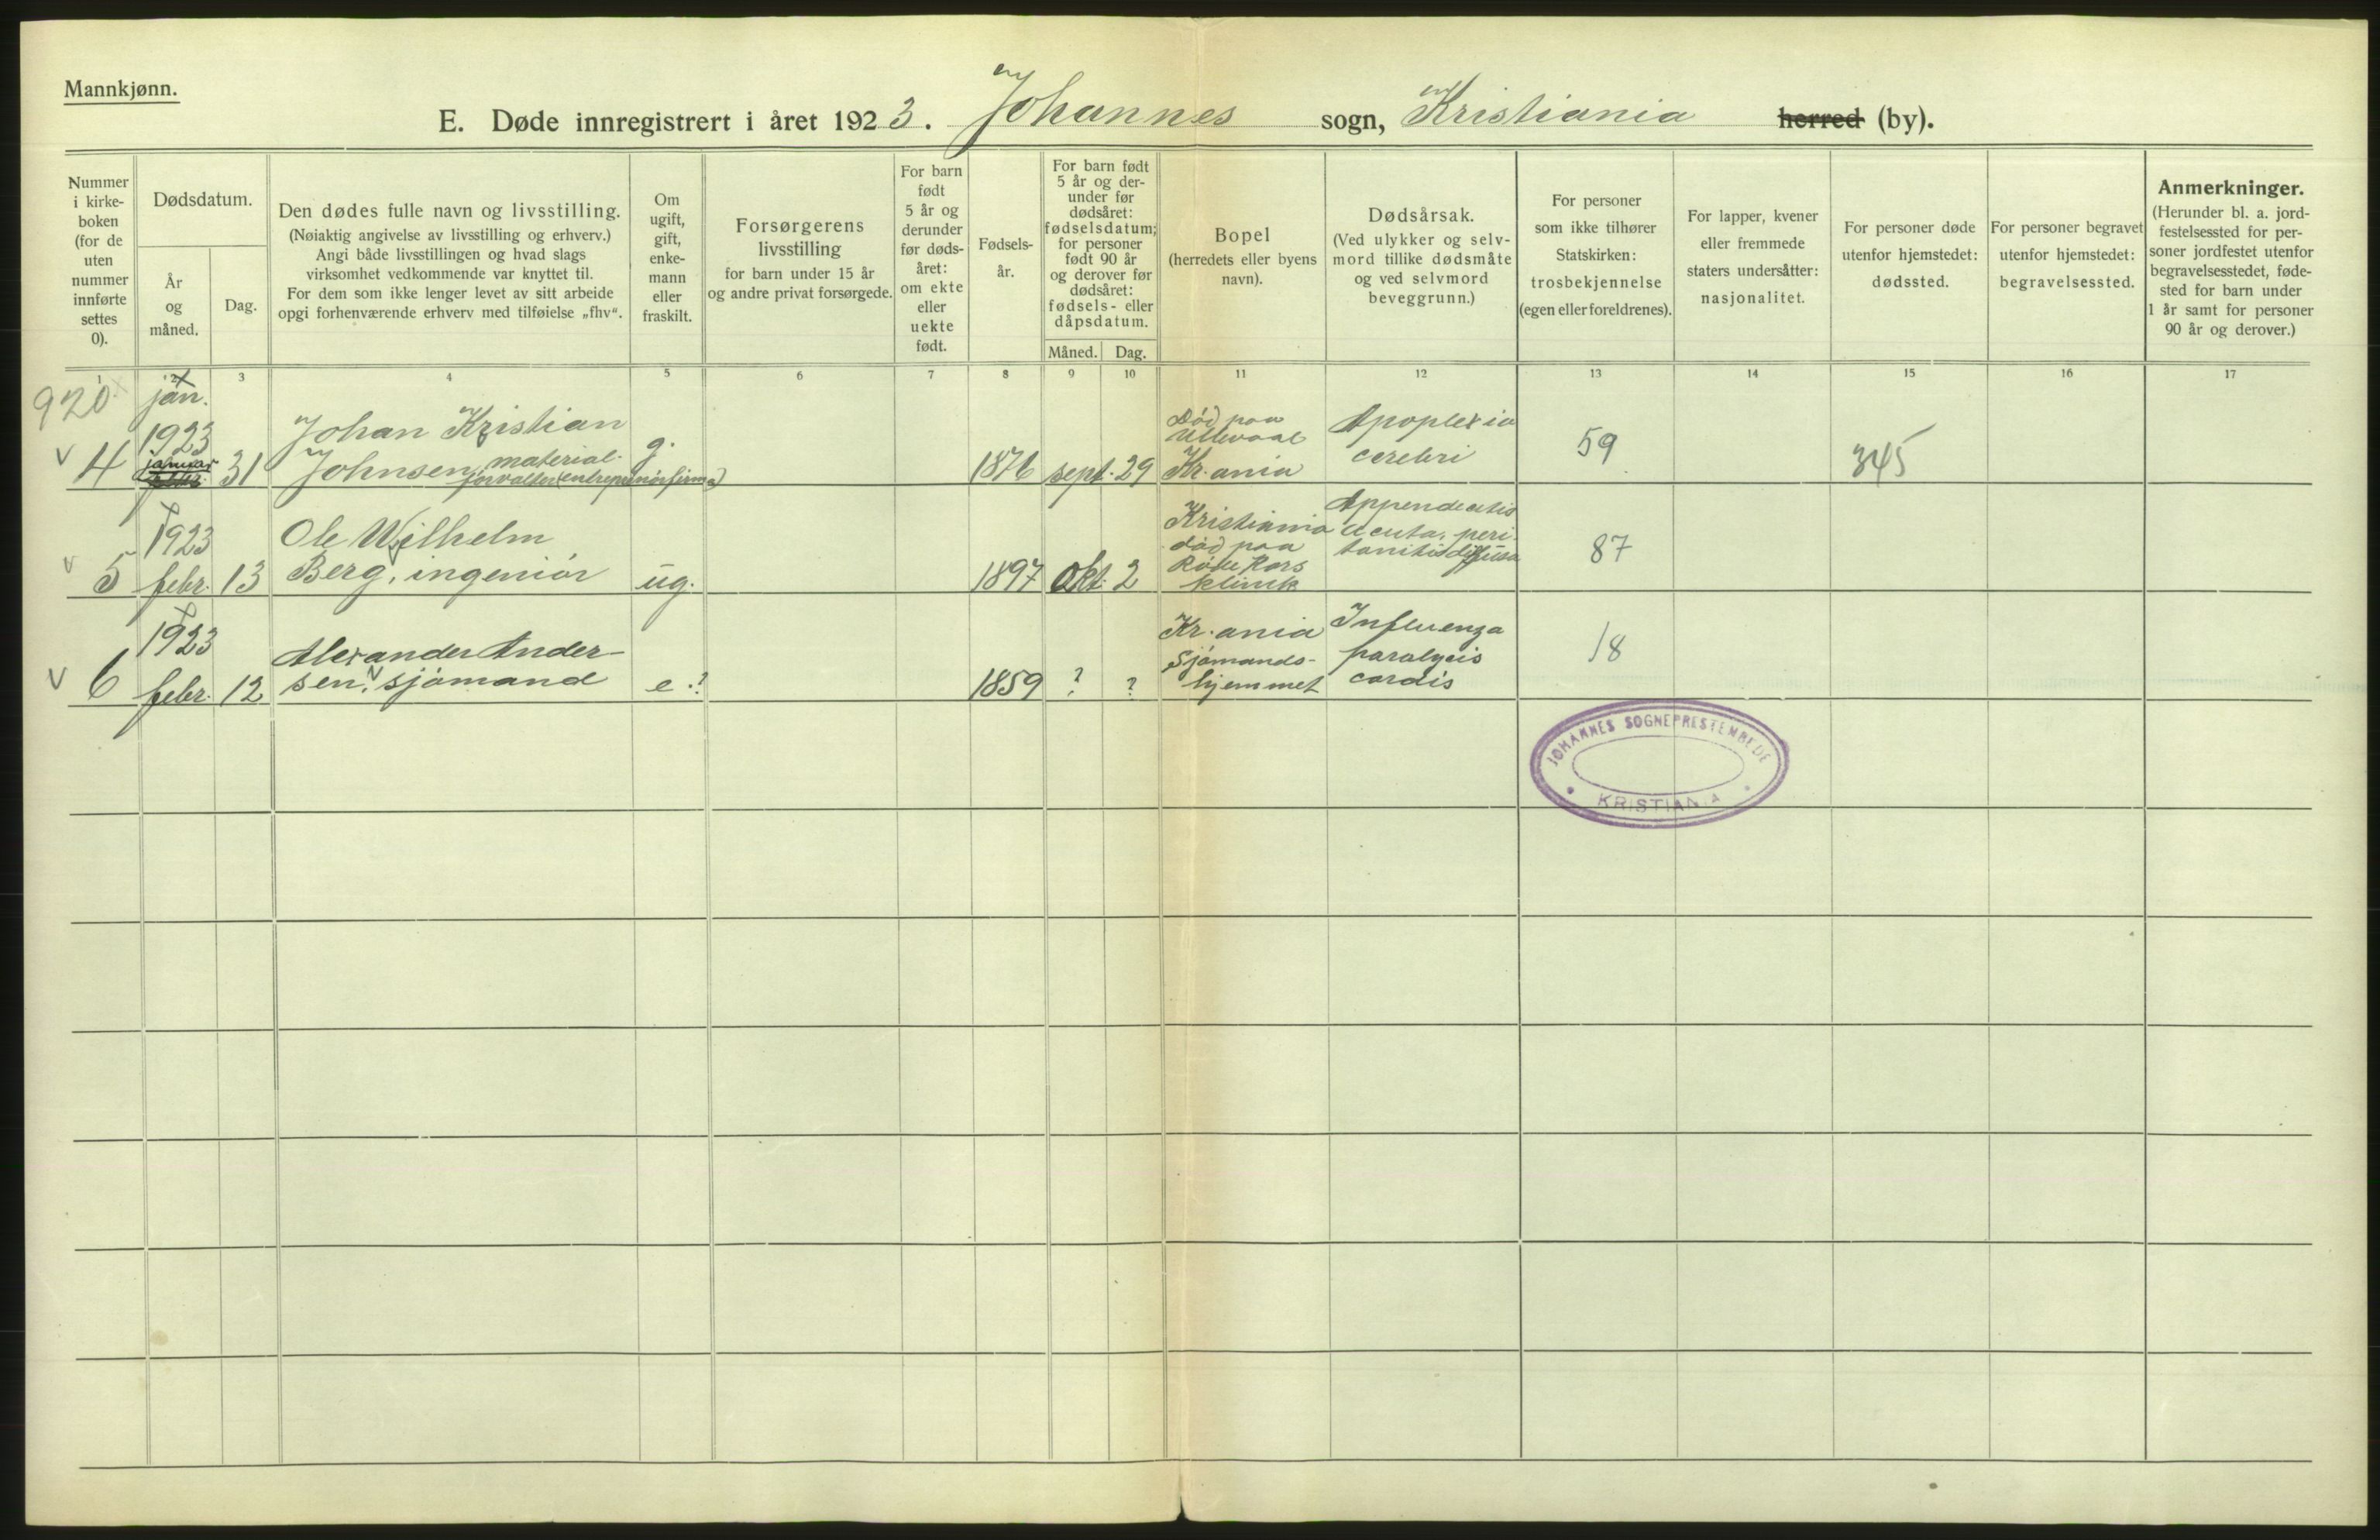 Mannkjønn.
E. Døde innregistrert i året 1923. Johannes sogn, Kristiania herred (by).
Nummer
i kirke-
boken
(for de
uten
nummer
innførte
settes
0).
Dødsdatum.
År
og
måned.
Dag.
Den dødes fulle navn og livsstilling.
(Nøiaktig angivelse av livsstilling og erhverv.)
Angi både livsstillingen og hvad slags
virksomhet vedkommende var knyttet til.
For dem som ikke lenger levet av sitt arbeide
opgi forhenværende erhverv med tilføielse „fhv“.
Om
ugift,
gift,
enke-
mann
eller
fraskilt.
Forsørgerens
livsstilling
for barn under 15 år
og andre privat forsørgede.
For barn
født
5 år og
derunder
før døds-
året:
om ekte
eller
uekte
født.
Fødsels-
år.
For barn født
5 år og der-
under før
dødsåret:
fødselsdatum;
for personer
født 90 år
og derover før
dødsåret:
fødsels- eller
dåpsdatum.
Måned.
Dag.
Bopel
(herredets eller byens
navn).
Dødsårsak.
(Ved ulykker og selv-
mord tillike dødsmåte
og ved selvmord
beveggrunn.)
For personer
som ikke tilhører
Statskirken:
trosbekjennelse
(egen eller foreldrenes).
For lapper, kvener
eller fremmede
staters undersåtter:
nasjonalitet.
For personer døde
utenfor hjemstedet:
dødssted.
For personer begravet
utenfor hjemstedet:
begravelsessted.
Anmerkninger.
(Herunder bl. a. jord-
festelsessted for per-
soner jordfestet utenfor
begravelsesstedet, føde-
sted for barn under
1 år samt for personer
90 år og derover.)
1 2 3 4 5 6 7 8 9 10 11 12 13 14 15 16 17
920
jan.
v 4
1923
januar
31
Johan Kristian
Johnsen, material-
forvalter (entreprenørfirma)
g.
1876
sept. 29
Død paa
Ullevaal
Kr.ania
Apoplexia
cerebri
59
345
v 5
1923
febr. 13
Ole Wilhelm
Berg, ingeniör
ug.
1897
Okt. 2
Kristiania
död paa
Röde Kors
klinik
Appendicitis
acuta, peri-
tonitis diffusa
87
v 6
1923
febr. 12
Alexander Ander-
sen, sjömand
e.?
1859
? ?
Kr.ania
Sjömands-
hjemmet
Influenza
paralysis
cordis
18
JOHANNES SOGNEPRESTEMBEDE
KRISTIANIA